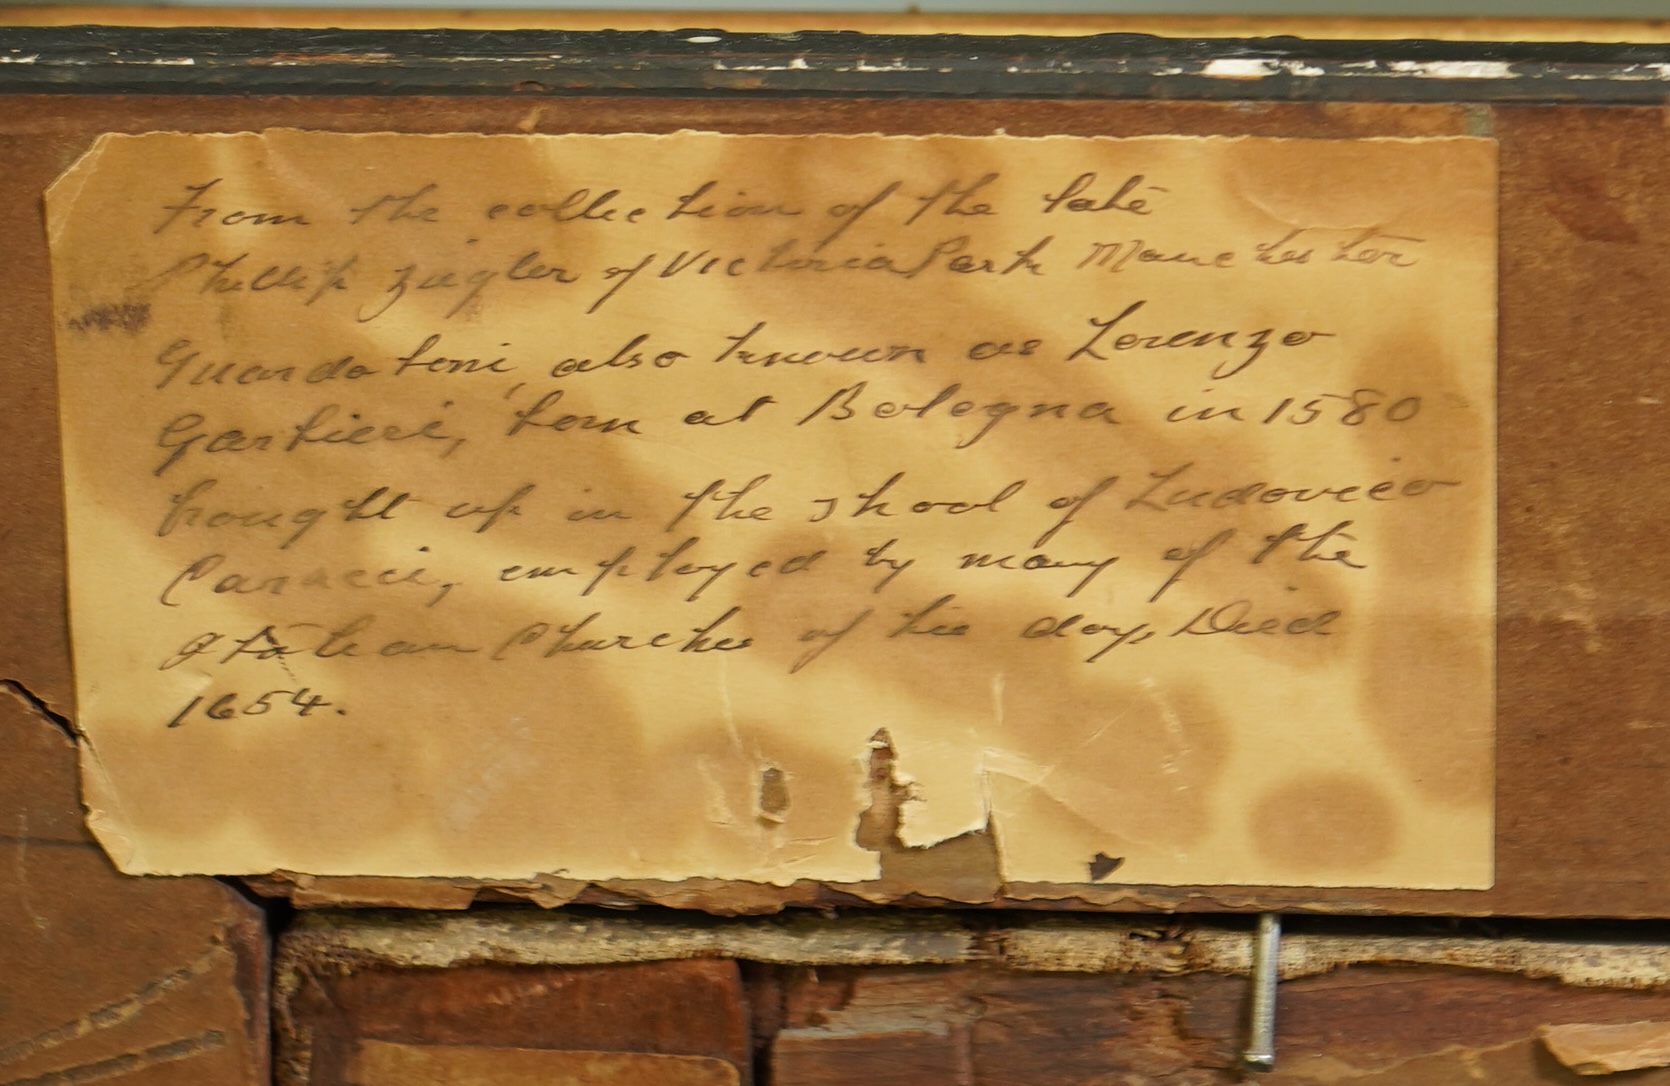 From the collection of the late
Phillip Ziegler of Victoria Park Manchester
Guardatoni also known as Lorenzo
Garbieri, born at Bologna in 1580
brought up in the shool of Ludovico
Caracci, employed by many of the
Italian Churches of his day, Died
1654.